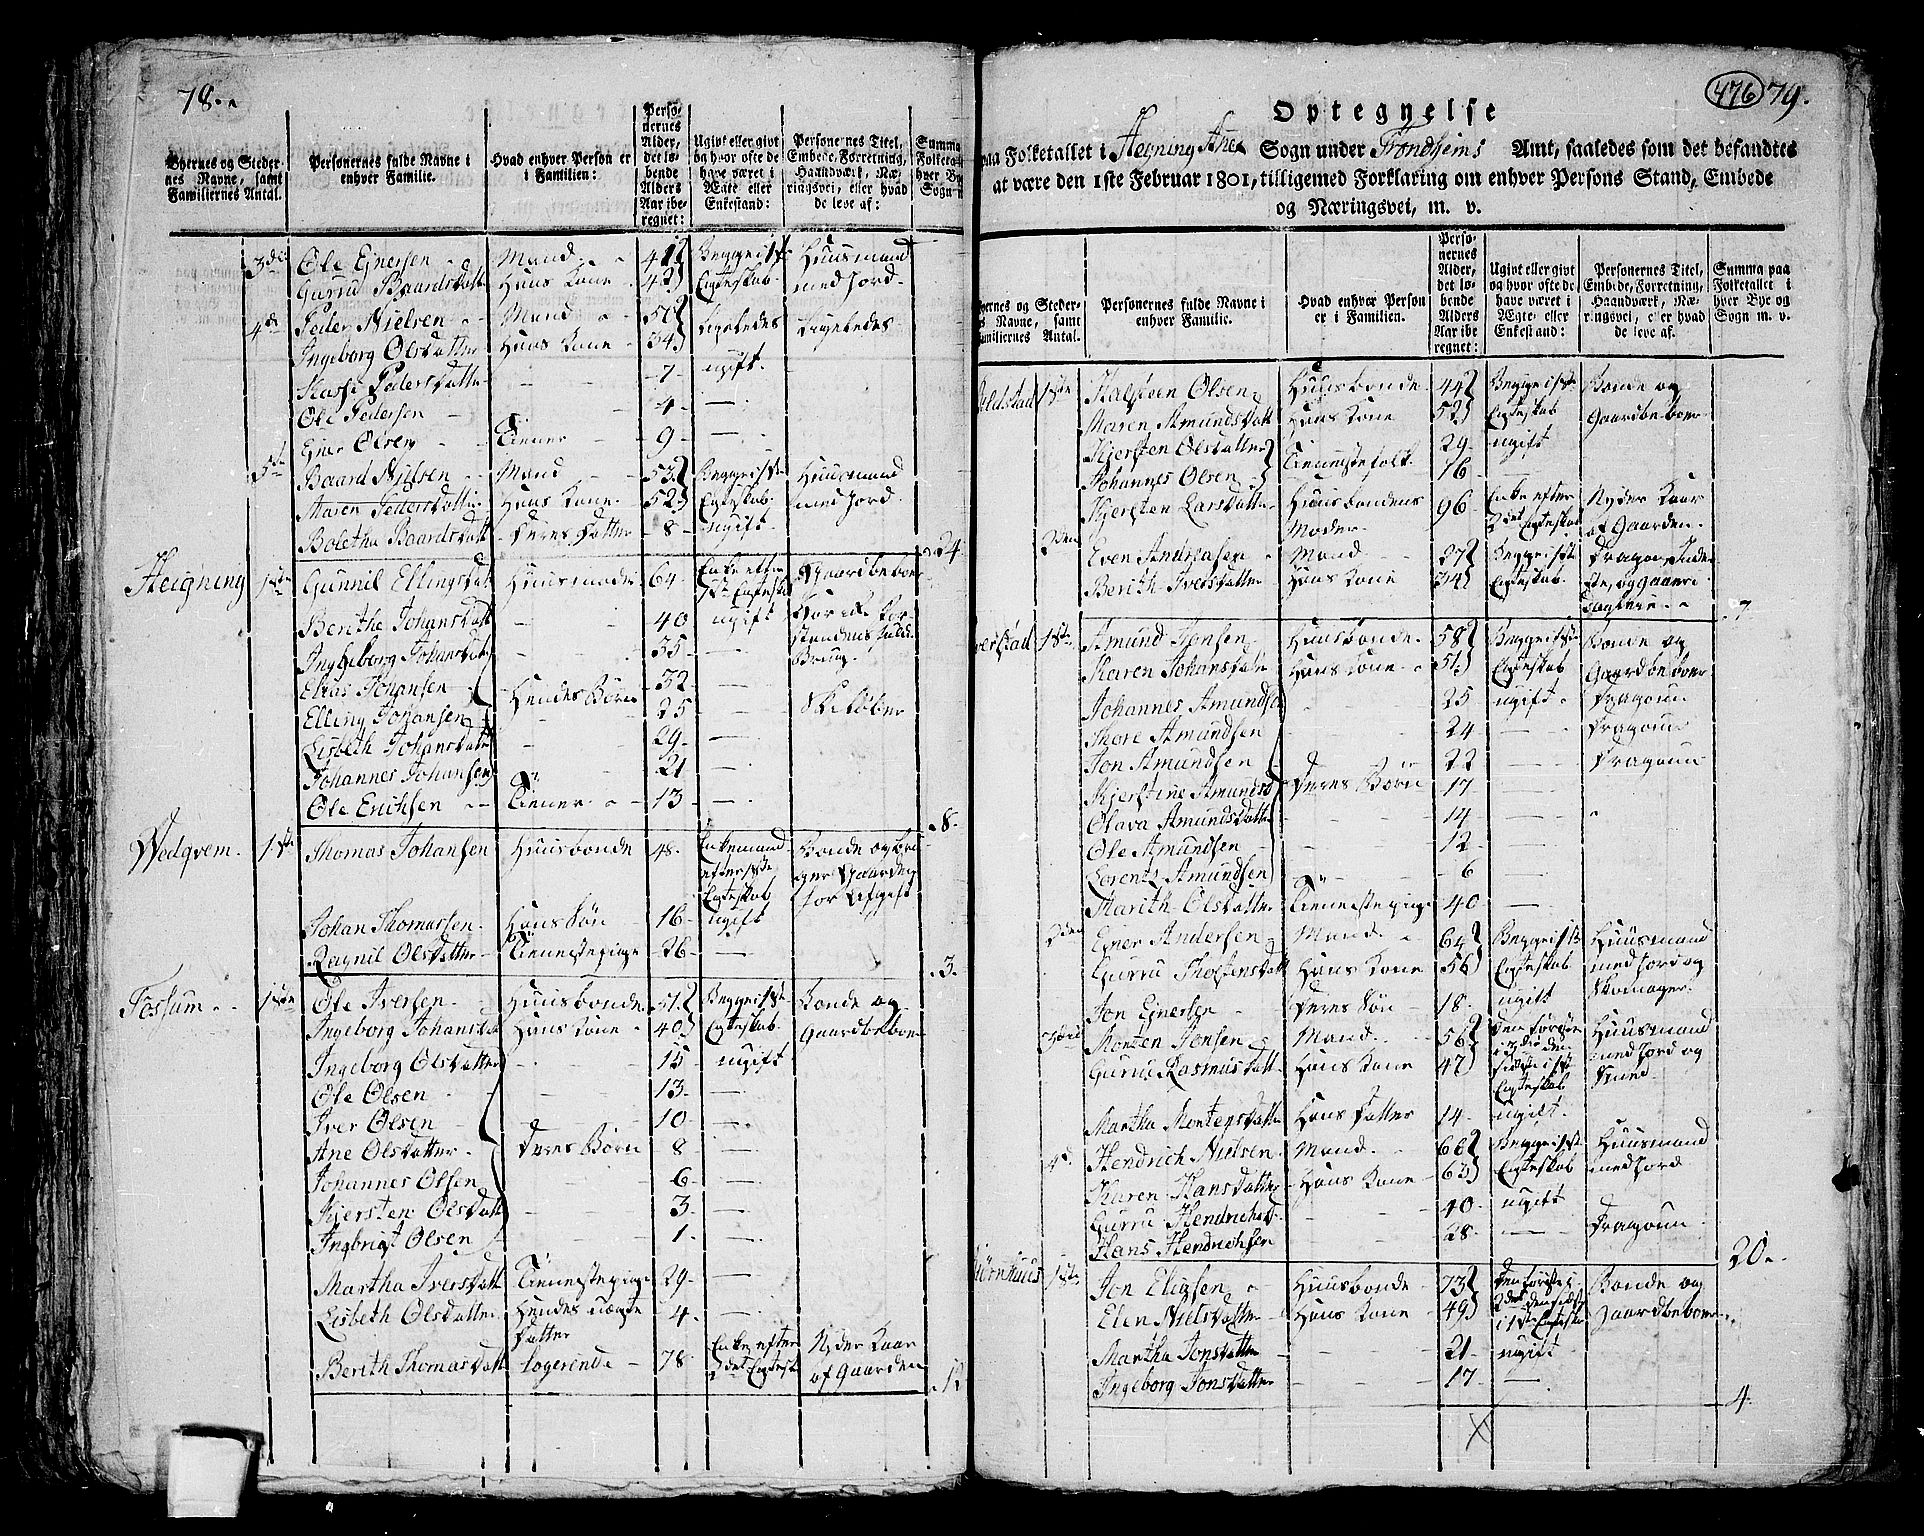 78.
Byernes og Steder-
nes Navne, samt
Familiernes Antal.
Personernes fulde Navne i
enhver Familie.
Hvad enhver Person er
i Familien:
Perso-
nernes
Alder,
det lø-
bende
Alders
Aar ibe-
regnet:
Ugivt eller givt
og hvor ofte de
have været i
Ægte eller
Enkestand:
Personernes Titel,
Embede, Forretning,
Haandværk, Næ-
ringsvei, eller hvad
de leve af:
Summa
Folketal
hver By
Sogn
3die Ole Ejnersen Mand 41 Begge i 1ste Huusmand
Gurru Baardsdatt Hans Kone 42 Egteskab med Jord
4de Peder Nielsen Mand 51 Ligeledes Ligeledes
Ingeborg Olsdatter Hans Kone 34
Pedersdatter 7 ugift
Ole Pedersen 4
Ejner Olsen Tiener 9
5te Baard Nielsen Mand 53 Begge i 1ste Huusmand
Maren Pedersdatter Hans Kone 52 Egteskab med Jord
Boletha Baardsdatt Deres Datter 8 ugift
24
Heigning 1ste Gunnil Ellingsdat Huusmoder 64 Enke efter Gaardbeboer
1ste Egteskab
Berithe Johansdatt 40 ugift
Ingeborg Johansdatt 35
Elias Johansen Hendes Børn 32
Elling Johansen 25 Skiløber
Lisbeth Johansdatt 29
Johannes Johansen 21
Ole Erichsen Tiener 13
8
Wedqvem 1ste Thomas Johansen Huusbonde 48 Enkemand Bonde og
efter 1ste
Egteskab for Afgift
Johan Thomassen Hans Søn 16 ugift
Ragnil Olsdatter Tienestepige 26
3
Fossum 1ste Ole Iversen Huusbonde 51 Begge i 1ste Bonde og
Ingeborg Johansdatt Hans Kone 40 Egteskab Gaardbeboer
Ingeborg Olsdatter 15 ugift
Ole Olsen 13
Iver Olsen 10
Ane Olsdatter Deres Børn 8
Johannes Olsen 6
Kjersten Olsdatt 3
Ingbrigt Olsen 1
Martha Iversdatt Tienestepige 29
Lisbeth Olsdatter Hendes uægte 4
Datter
Berith Thomasdatt Logerende 78 Enke efter Nyder Kaar
2det Egtesk af Gaarden
12
476 79.
Optegnelse
paa Folketallet i Hegning Anex Sogn under Trondhiems Amt, saaledes som det befandtes
at være den 1ste Februar 1801, tilligemed Forklaring om enhver Persons Stand, Embede
og Næringsvei, m. v.
ernes og Steder-
s Navne, samt
amiliernes Antal.
Personernes fulde Navne i
enhver Familie.
Hvad enhver Person
er i Familien.
Perso-
nernes
Alder,
det lø-
bende
Alders
Aar ibe
regnet:
Ugivt eller givt
og hvor ofte de
have været i
Ægte- eller
Enkestand:
Personernes Titel,
Embede, Forretning,
Haandværk, Næ-
ringsvei, eller hvad
de leve af.
Summa paa
Folketallet i
hver Bye og
Sogn m. v.
1ste Halsteen Olsen Huusbonde 44 Begge i 1ste Bonde og
Maren Amundsdatt Hans Kone 52 Egteskab Gaardbeboer
Kjersten Olsdatter 29 ugift
Johannes Olsen Tienestefolk 16
Kjersten Larsdatter Huusbondens 96 Enke efter Nyder Kaar
Moder 2det Egteskab af Gaarden
2den Even Andreasen Mand 27 Begge i 1ste
Berith Iversdatter Hans Kone 34 Egteskab
7
1ste Amund Jonsen Huusbonde 58 Begge i 1ste Bonde og
Karen Johansdatt Hans Kone 51 Egteskab Gaardbeboer
Johannes Amundsen 25 ugift Dragoun
Thore Amundsen 24 Dragoun
Jon Amundsen 22 Dragoun
Kjerstine Amundsd Deres Børn 17
Olava Amundsdatter 14
Ole Amundsen 12
Lorents Amundsen 6
Marith Olsdatter Tienestepige 40
2den Ejner Andersen Mand 64 Begge i 1ste Huusmand
Gurru Thostensdatt Hans Kone 56 Egteskab med Jord og
Jon Ejnersen Deres Søn 18 ugift Skomager
3die Morten Jonsen Mand 56 Den første Huusmand
Gurru Rasmusdatt Hans Kone 47 i 3die den med Jord og
sidste i 1ste Smed
Egteskab
Martha Mortensdatter Hans Datter 14 ugift
4de Hendrich Nielsen Mand 66 Begge i 1ste Huusmand
Karen Hansdatter Hans Kone 63 Egteskab med Jord
Gurru Hendrichsd 40 ugift
Hans Hendrichsen 28 Dragoun
20
1ste Jon Elissen Huusbonde 73 Den første i Bonde og
Elen Nielsdatter Hans Kone 49 2det den sidste Gaardbeboer
i 1ste Egteskab
Martha Jonsdatter 21 ugift
Ingeborg Jonsdatter 17
4
X